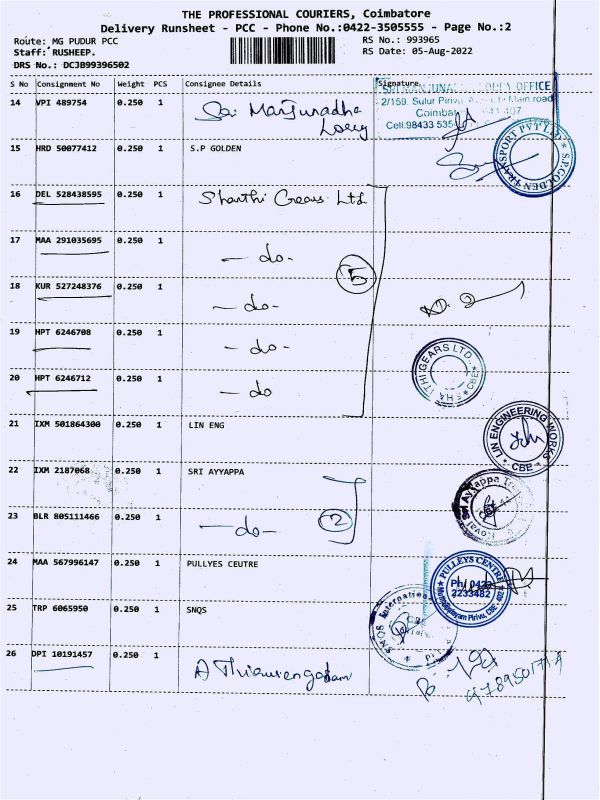 THE PROFESSIONAL COURIERS, Coimbatore
Delivery Runsheet - PCC - Phone No.:0422-3505555 - Page No.:2
Route: MG PUDUR PCC
RS No.: 993965
Staff: RUSHEEP.
RS Date: 05-Aug-2022
DRS No.: DCJB99396502
S No Consignment No Weight PCS Consignee Details Signature
14 VPI 489754 0.250 1 Sai Manjunadha
Lorry
OFFICE
2/159, Sulur Pirivu, Main road
Coimbat 407
Cell:98433 535
15 HRD 50077412 0.250 1 S.P GOLDEN
S.P.GOLDEN TRANSPORT PVT LTD
16 DEL 528438595 0.250 1 Shanthi Gears Ltd
17 MAA 291035695 0.250 1 - do -
5
18 KUR 527248376 0.250 1 - do -
19 HPT 6246708 0.250 1 - do -
THI GEARS LTD. CBE
20 HPT 6246712 0.250 1 - do
21 IXM 501864300 0.250 1 LIN ENG
LIN ENGINEERING WORKS
* CBE *
22 IXM 2187068 0.250 1 SRI AYYAPPA
Sri Ayyappa
23 BLR 805111466 0.250 1 - do -
2
24 MAA 567996147 0.250 1 PULLYES CEUTRE
PULLEYS CENTRE
Ph: 0422
2233482
25 TRP 6065950 0.250 1 SNQS
SNQS International
26 DPI 10191457 0.250 1 A Thiruvengadam